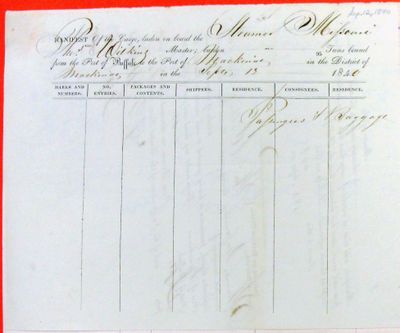 Sept 12, 1840
MANIFEST Of the Cargo, laden on board the Steamer Missouri
Thos. Wilkins Master; burthen 95 Tons bound
from the Port of Buffalo to the Port of Mackinac in the District of
Mackinac in the Septr. 13 1840
MARKS AND NUMBERS. NO. ENTRIES. PACKAGES AND CONTENTS. SHIPPERS. RESIDENCE. CONSIGNEES. RESIDENCE.
Passengers & Baggage